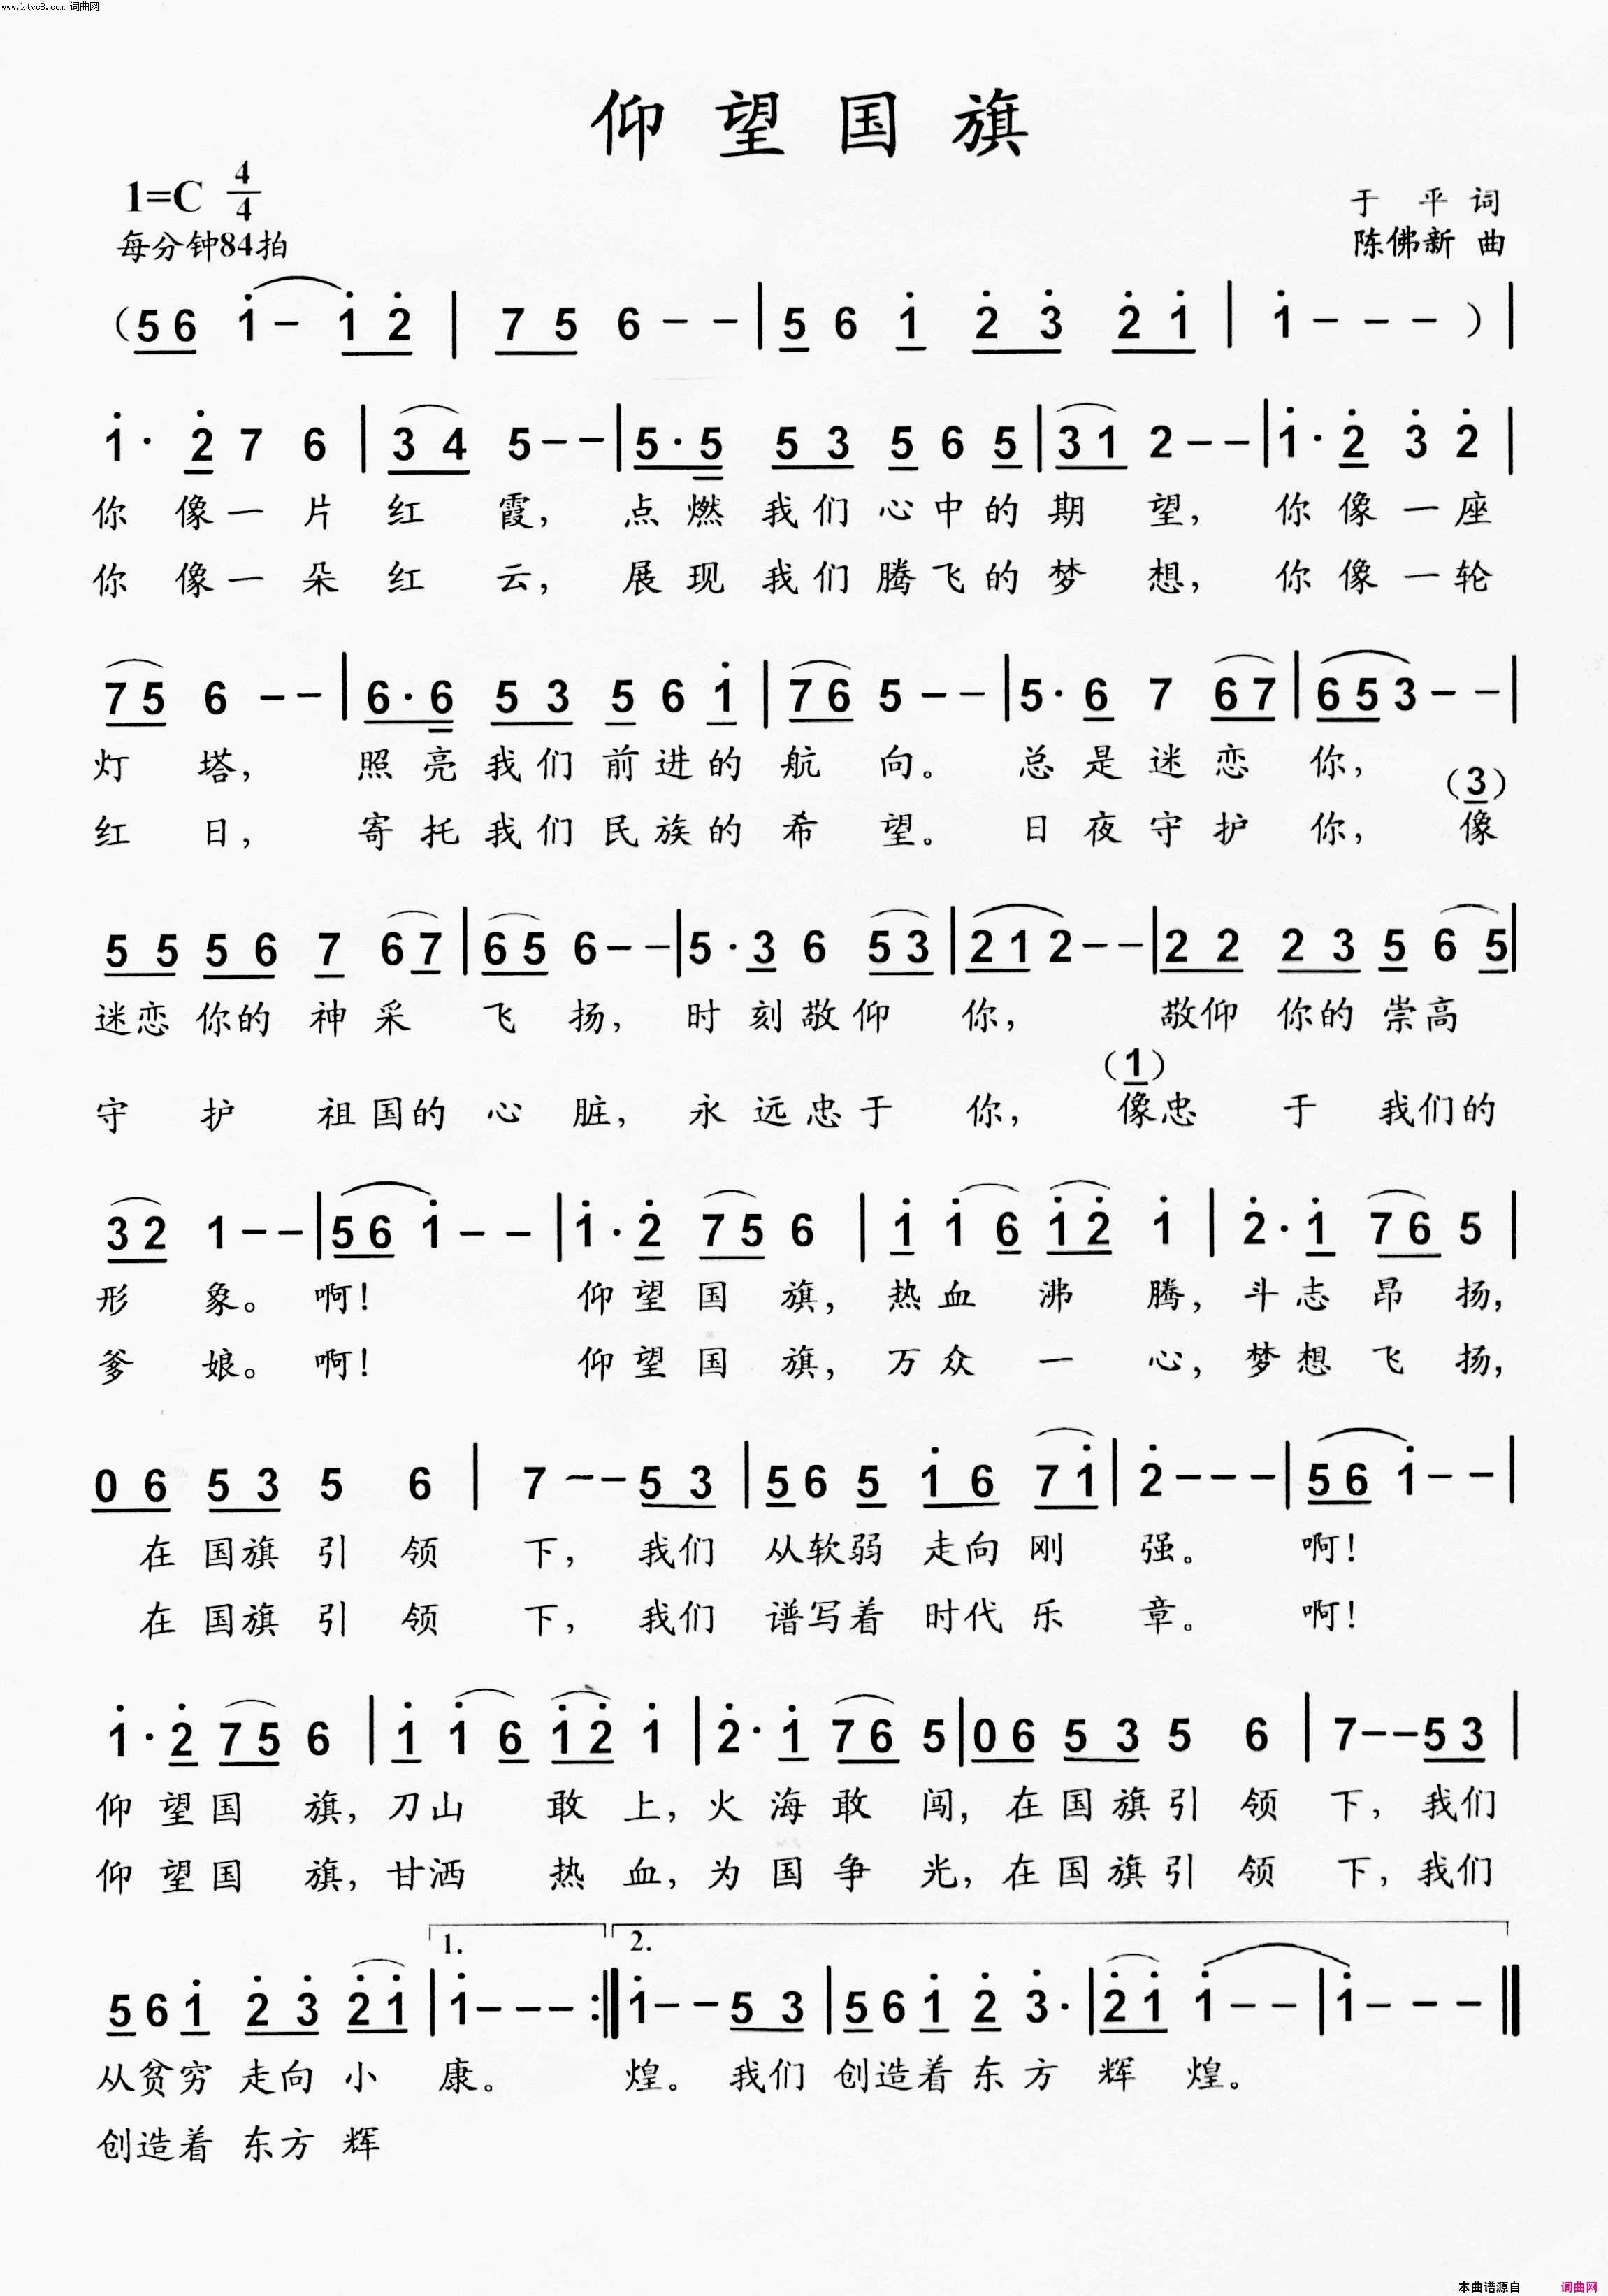 www.ktvc8.com 词曲网
仰望国旗
1=C 4/4
于 平 词
每分钟84拍
陈佛新 曲
(56 1̇- 1̇2̇ | 75 6-- | 5 6 1̇ 2̇3̇ 2̇1̇ | 1̇--- ) |
1̇· 2̇ 7 6 | 34 5-- | 5·5 53 5 6 5 | 31 2-- | 1̇·2̇ 3̇ 2̇ |
你像一片红霞，点燃我们心中的期望，你像一座
你像一朵红云，展现我们腾飞的梦想，你像一轮
75 6 -- | 6·6 53 5 6 1̇ | 76 5-- | 5·6 7 67 | 653-- |
灯塔，照亮我们前进的航向。总是迷恋你，
(3)
红日，寄托我们民族的希望。日夜守护你，像
55 56 7 67 | 65 6-- | 5·3 6 53 | 212-- | 22 23 5 65 |
迷恋你的神采飞扬，时刻敬仰你，敬仰你的崇高
(1)
守护祖国的心脏，永远忠于你，像忠于我们的
32 1-- | 561̇-- | 1̇·2̇ 75 6 | 1̇ 1̇6 1̇2̇ 1̇ | 2̇·1̇ 76 5 |
形象。啊！仰望国旗，热血沸腾，斗志昂扬，
爹娘。啊！仰望国旗，万众一心，梦想飞扬，
06 53 5 6 | 7--53 | 565 1̇6 71̇ | 2̇--- | 561̇-- |
在国旗引领下，我们从软弱走向刚强。啊！
在国旗引领下，我们谱写着时代乐章。啊！
1̇·2̇ 75 6 | 1̇ 1̇6 1̇2̇ 1̇ | 2̇·1̇ 76 5 | 06 53 5 6 | 7--53 |
仰望国旗，刀山敢上，火海敢闯，在国旗引领下，我们
仰望国旗，甘洒热血，为国争光，在国旗引领下，我们
1. 2.
561̇ 2̇3̇ 2̇1̇ | 1̇--- :‖ 1̇--53 | 561̇ 2̇ 3̇· | 2̇1̇ 1̇-- | 1̇--- ‖
从贫穷走向小康。煌。我们创造着东方辉煌。
创造着东方辉
本曲谱源自 词曲网